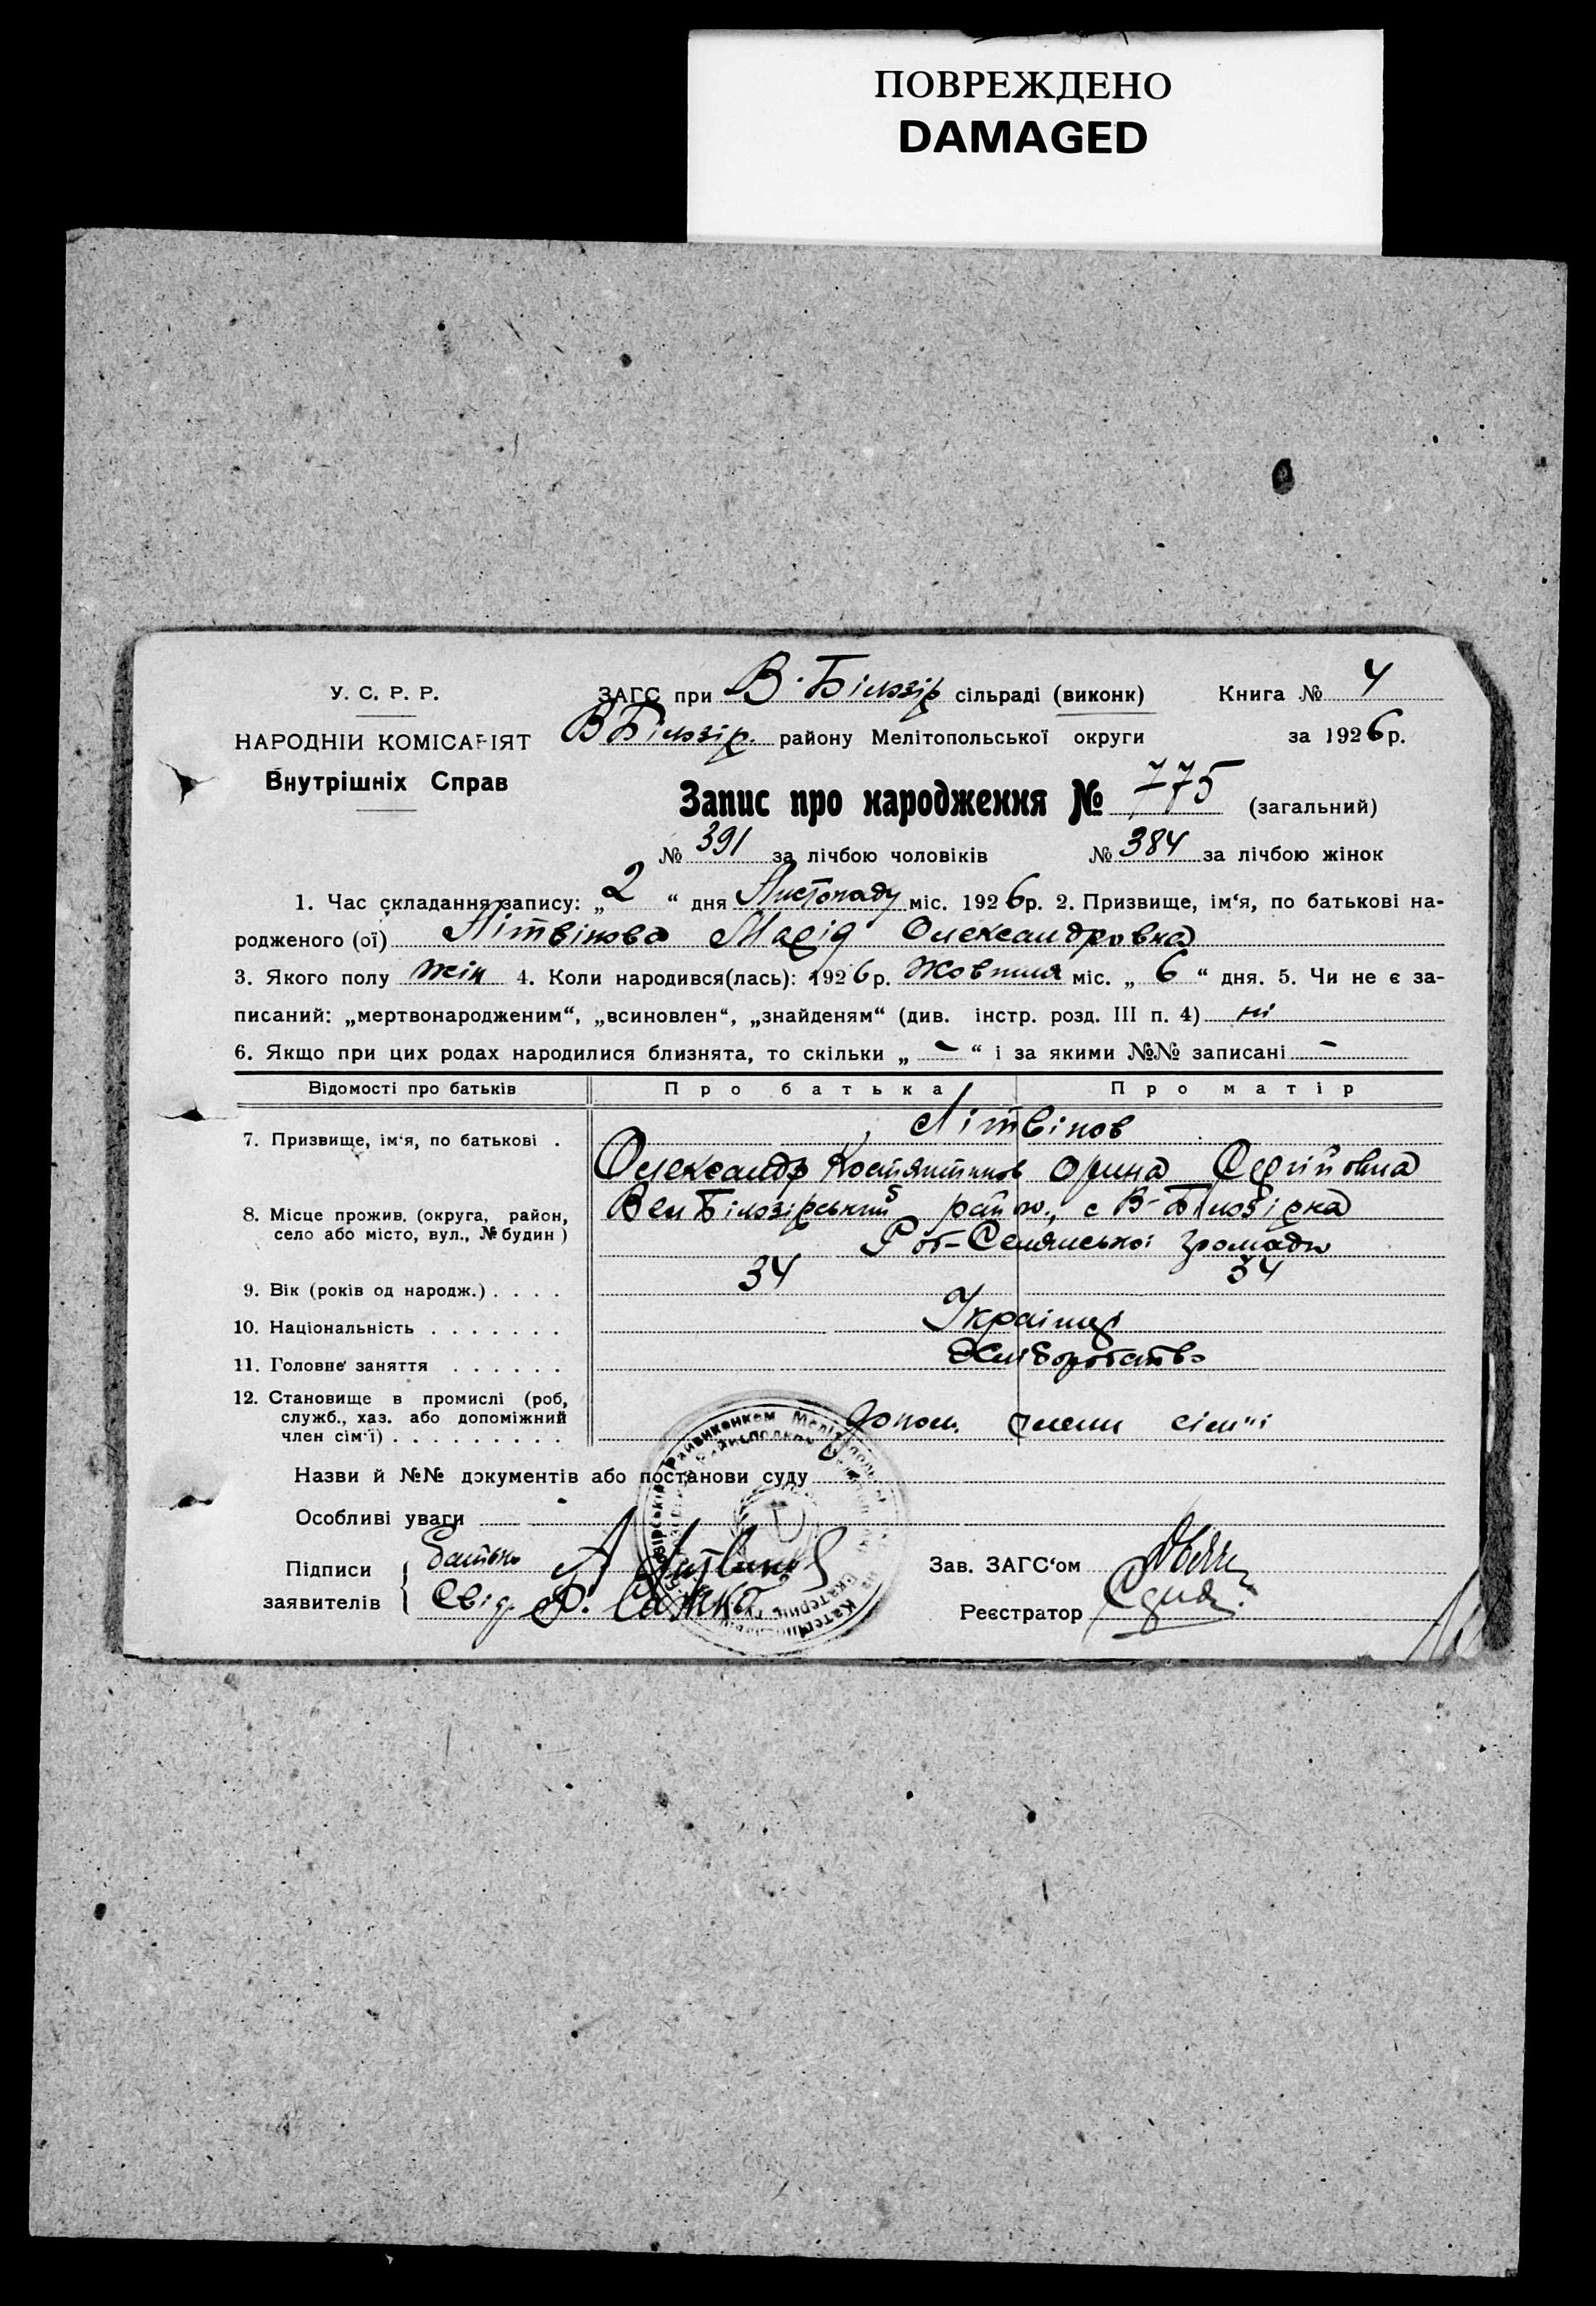 ПОВРЕЖДЕНО
DAMAGED
У. С. Р. Р.
НАРОДНІЙ КОМІСАРІЯТ
Внутрішніх Справ
ЗАГС при В. Білозір сільраді (виконк) Книга № 4
В Білозір. району Мелітопольської округи за 1926 р.
Запис про народження № 775 (загальний)
№ 391 за лічбою чоловіків № 384 за лічбою жінок
1. Час складання запису: „2“ дня Листопаду міс. 1926 р. 2. Призвище, ім‘я, по батькові на-
родженого (ої) Літвінова Марія Олександровна
3. Якого полу жін 4. Коли народився(лась): 1926 р. Жовтня міс. „6“ дня. 5. Чи не є за-
писаний: „мертвонародженим“, „всиновлен“, „знайденям“ (див. інстр. розд. III п. 4) ні
6. Якщо при цих родах народилися близнята, то скільки „ – “ і за якими №№ записані –
Відомості про батьків Про батька Про матір
7. Призвище, ім‘я, по батькові . Літвінов
Олександр Костянтинов Орина Сергійовна
8. Місце прожив. (округа, район, Вел Білозірський район, с В-Білозірка
село або місто, вул., № будин) Роб-Селянської громади
9. Вік (років од народж.) . . . . 34 34
10. Національність . . . . . . . Українці
11. Головне заняття . . . . . . Хліборобство
12. Становище в промислі (роб,
служб., хаз. або допоміжний
член сім‘ї) . . . . . . . . . допом. члени сім"ї
Назви й №№ документів або постанови суду
Особливі уваги
Підписи Батько А Литвинов Зав. ЗАГС‘ом
заявителів Свід. Ф. Сажко Реєстратор